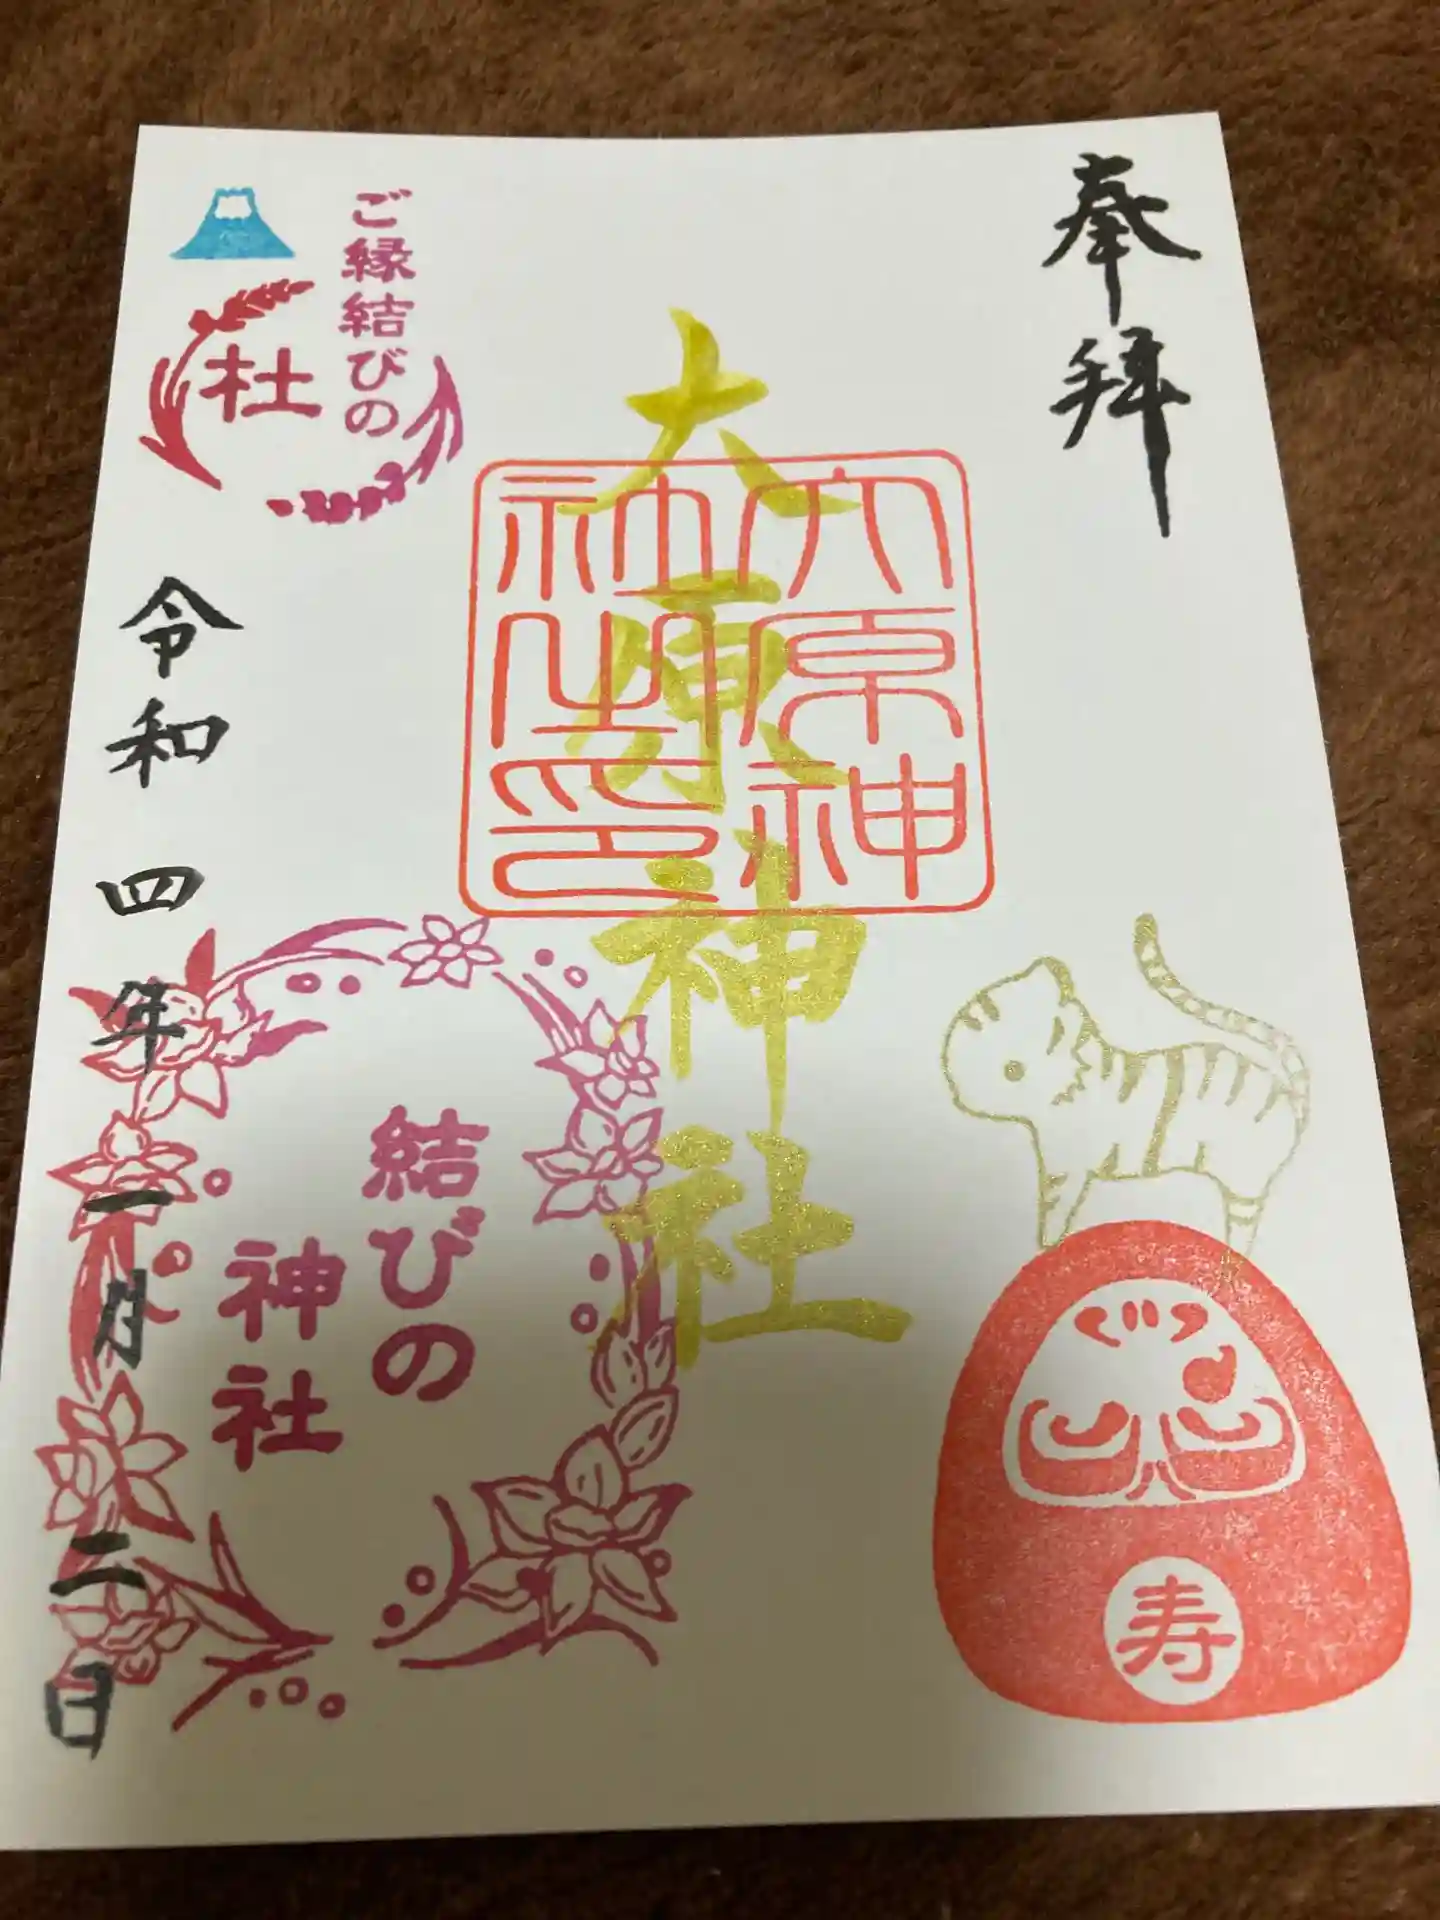 奉拝
大原神社
大原神
社之印
ご縁結びの
杜
令和四年一月二日
結びの
神社
寿